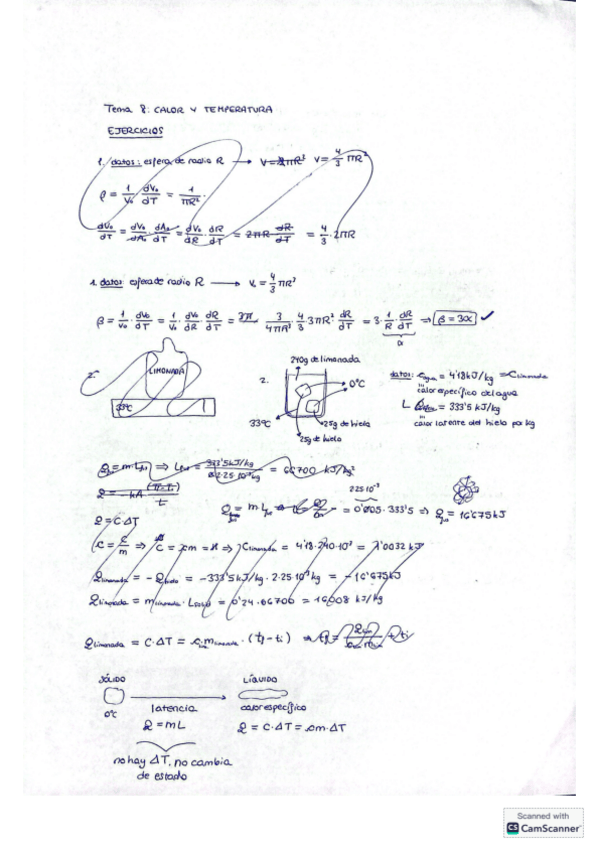 Tema 8: CALOR Y TEMPERATURA
EJERCICIOS
1. datos: esfera de radio R → V = 4/3 πR²
β = 1/V₀ · dV₀/dT = 1/πR² ·
dV₀/dT = dV₀/dA₀ · dA₀/dT = dV₀/dR · dR/dT = 2πR · dR/dT = 4/3 · 2πR
1. datos: esfera de radio R → V₀ = 4/3 πR³
β = 1/V₀ · dV₀/dT = 1/V₀ · dV₀/dR · dR/dT = 3/4πR³ · 4/3 · 3πR² · dR/dT = 3 · 1/R · dR/dT ⇒ β = 3α ✓
α
2.
LIMONADA
33ºC
2.
240g de limonada
0ºC
33ºC
25g de hielo
25g de hielo
datos: c agua = 4'18 kJ/kg = c limonada
calor específico del agua
L = 333'5 kJ/kg
calor latente del hielo por kg
= 333'5 kJ/kg / 2·25·10⁻³ kg = 66700 kJ/kg²
2·25·10⁻³
= m L = 0'005 · 333'5 ⇒ Q = 16'675 kJ
Q = C·ΔT
c = C/m ⇒ C = cm ⇒ C limonada = 4'18·240·10⁻³ = 1'0032 kJ
Q limonada = -Q hielo = -333'5 kJ/kg · 2·25·10⁻³ kg = -16'675 kJ
Q limonada = m limonada · L = 0'24 · 66700 = 16008 kJ/kg
Q limonada = C·ΔT = c·m limonada · (tf - ti)
SÓLIDO
LÍQUIDO
0ºC
latencia
calor específico
Q = mL
Q = C·ΔT = cm·ΔT
no hay ΔT, no cambia
de estado
Scanned with
CS CamScanner